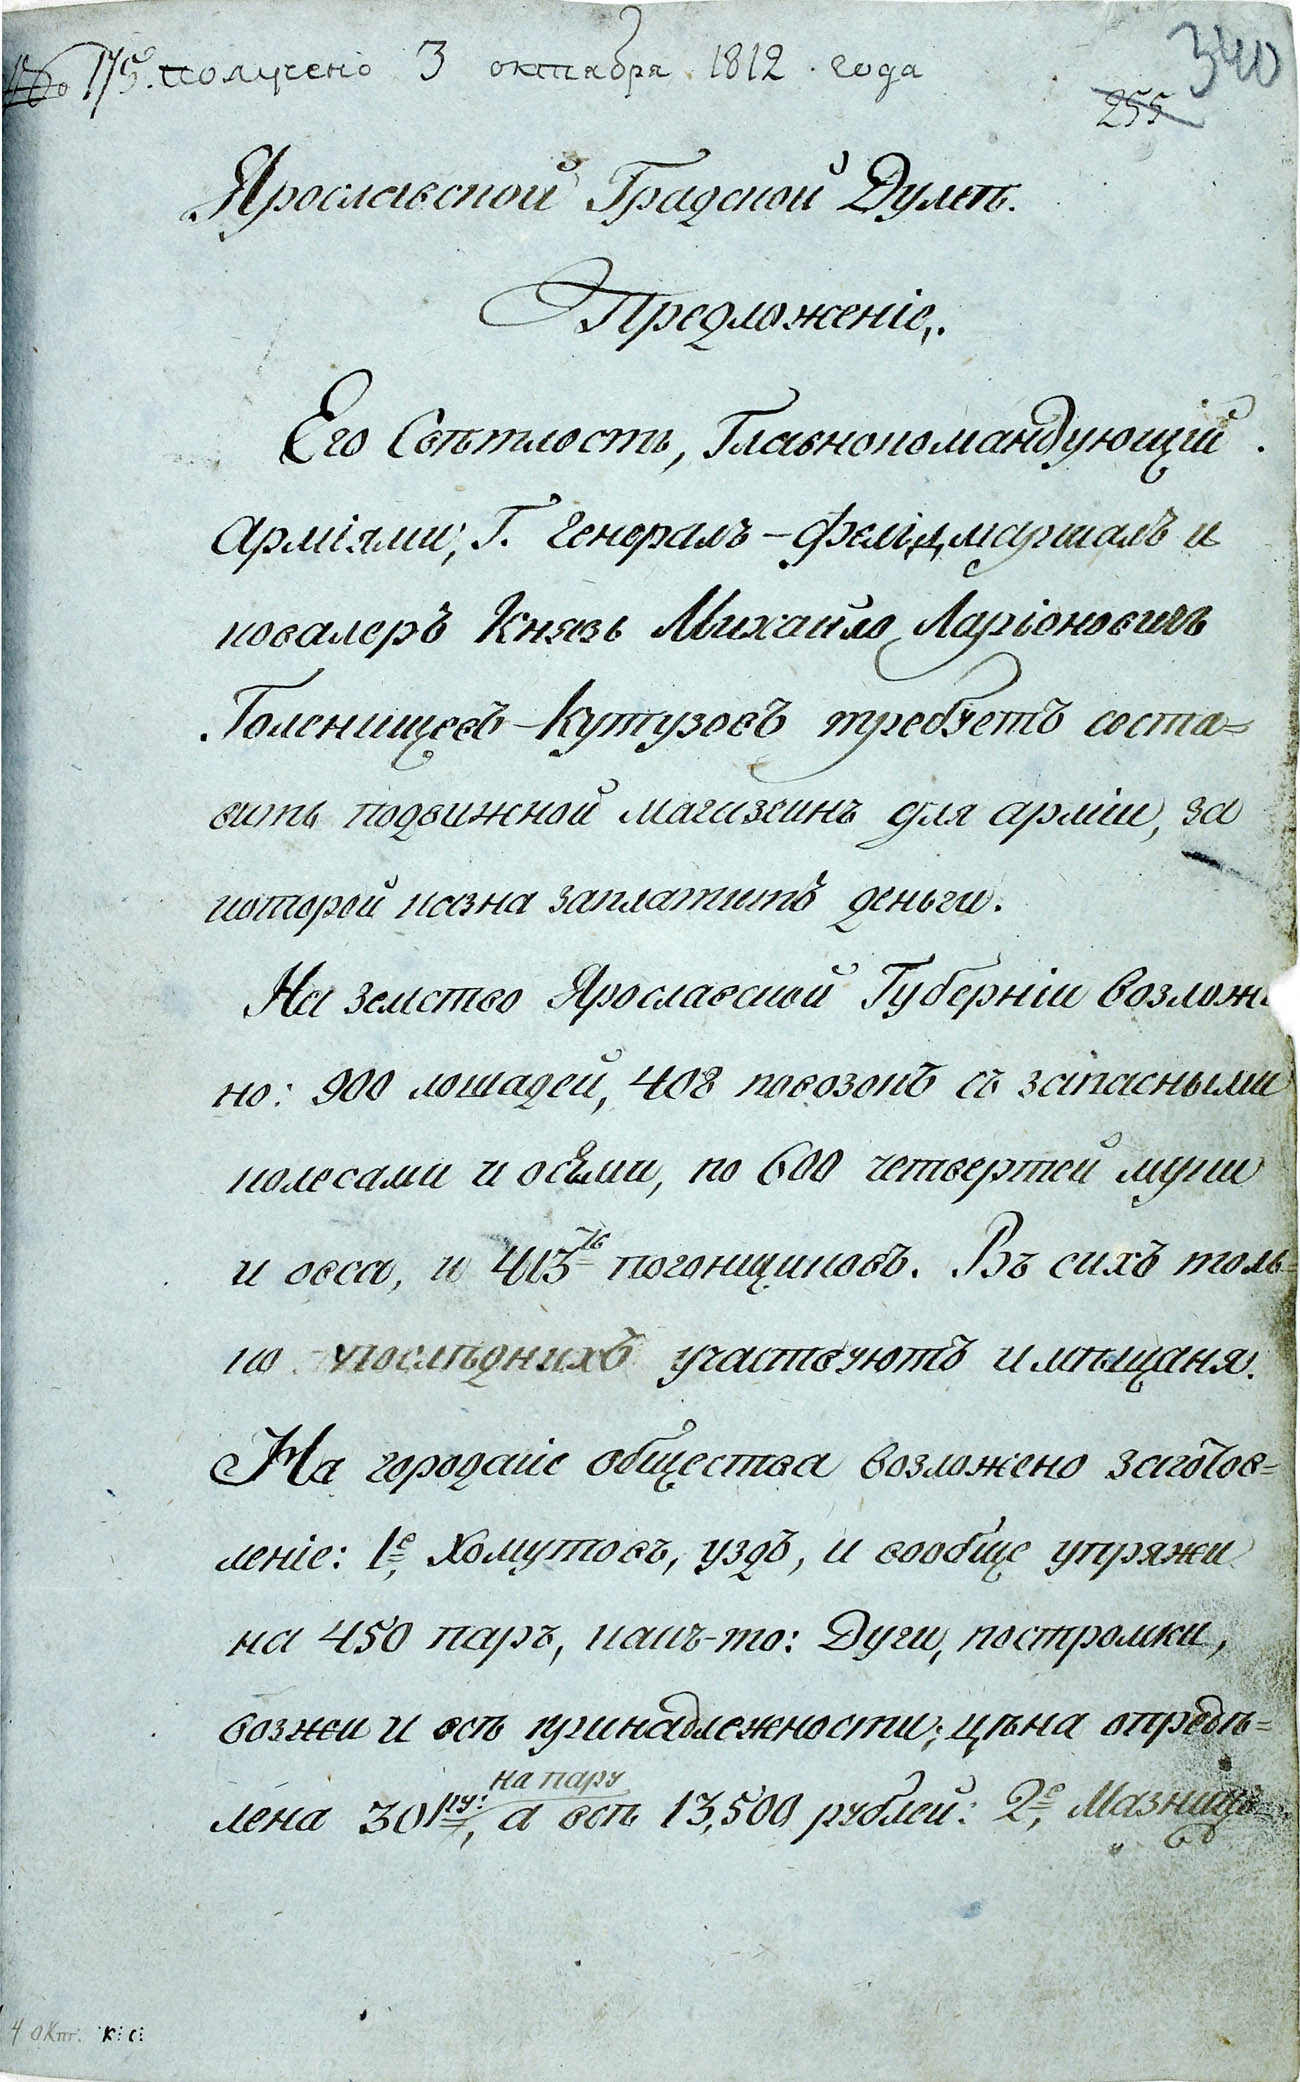 175. получено 3 октября 1812 года
340
255
Ярославской Градской Думѣ.
Предложеніе.
Его Свѣтлость, Главнокомандующій
Арміями, Г. Генералъ-Фельдмаршалъ и
ковалеръ Князь Михайло Ларіоновичъ
Голенищевъ-Кутузовъ требуетъ соста=
вить подвижной магазеинъ для арміи, за
которой казна заплатитъ деньги.
На земство Ярославской Губерніи возложе
но: 900 лошадей, 408 повозокъ съ запасными
колесами и осьми, по 600 четвертей муки
и овса, и 413ть погонщиковъ. Въ сихъ толь=
ко послѣднихъ участвуютъ и мѣщаня.
На городскіе общества возложено заготов=
леніе: 1е, Хомутовъ, уздъ, и вообще упряжи
на 450 паръ, какъ-то: Дуги, постромки,
возжи и всѣ принадлежности; цѣна опредѣ=
на пару
лена 30 ру:, а всѣ 13,500 рублей: 2е, Мазницъ
4 окт: